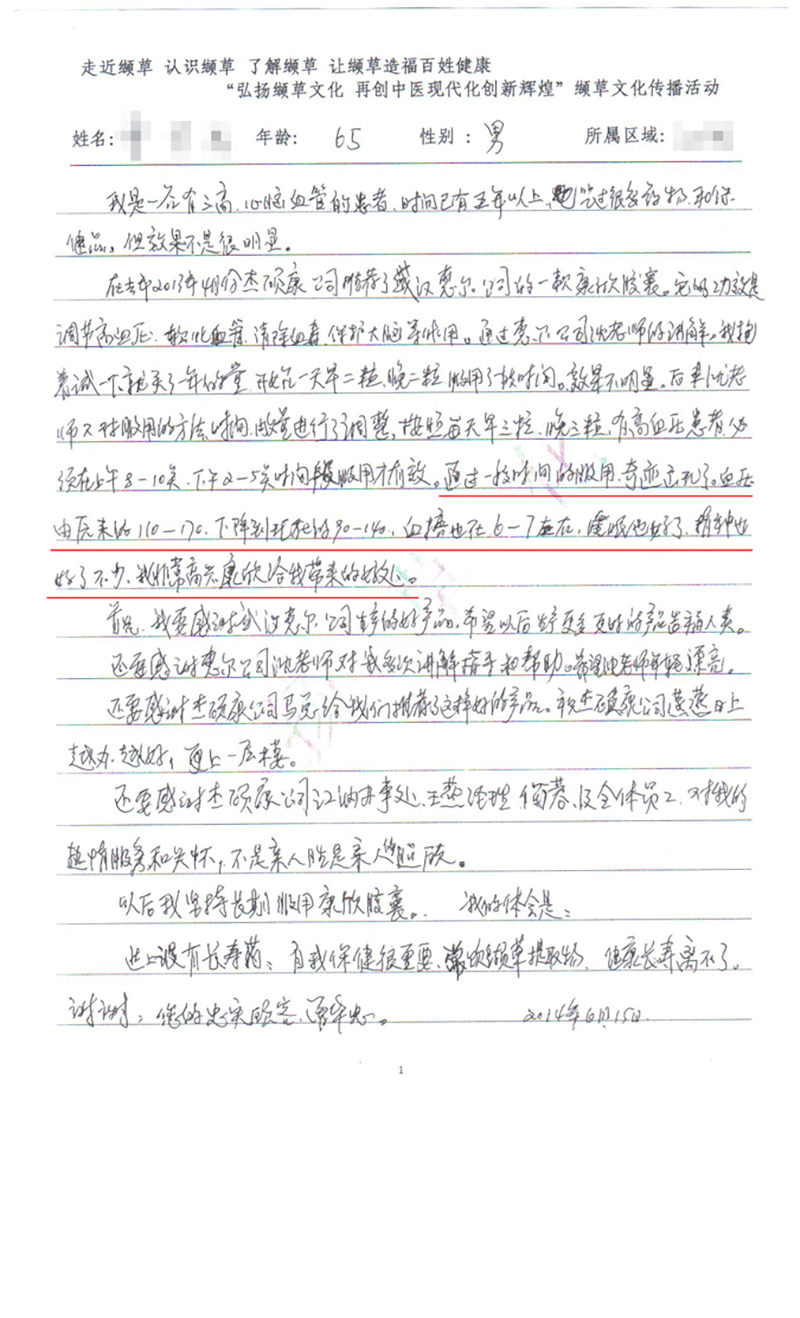 走近缬草 认识缬草 了解缬草 让缬草造福百姓健康
“弘扬缬草文化 再创中医现代化创新辉煌”缬草文化传播活动
姓名: 年龄: 65 性别：男 所属区域:
我是一名有三高、心脑血管的患者、时间已有五年以上、也吃过很多药物、和保
健品，但效果不是很明显。
在去年2013年4月份杰硕康公司推荐了武汉惠尔公司的一款康欣胶囊。它的功效是
调节高血压、软化血管、清除血毒、保护大脑等作用。通过惠尔公司沈老师的讲解。我抱
着试一下就买了一年的量 开始一天早二粒、晚二粒 服用了一段时间。效果不明显。后来沈老
师又对服用的方法、时间、数量进行了调整，按照每天早三粒、晚三粒、有高血压患者、必
须在上午8-10关、下午2-5关时间段服用才有效。通过一段时间的服用、奇迹出现了。血压
由原来的110-170、下降到现在的90-140、血糖也在6-7左右、睡眠也好了、精神也
好了不少、我非常高兴康欣给我带来的好处。
首先、我要感谢武汉惠尔公司生产的好产品，希望以后生产更多更好的产品造福人类。
还要感谢惠尔公司沈老师对我多次讲解指导和帮助。希望沈老师年轻漂亮。
还要感谢杰硕康公司马总给我们推荐了这样好的产品。祝杰硕康公司蒸蒸日上
越办越好，更上一层楼。
还要感谢杰硕康公司江汭办事处、王燕经理 及全体员工、对我的
热情服务和关怀，不是亲人胜是亲人
以后我坚持长期服用康欣胶囊。 我的体会是：
世上没有长寿药：自我保健很重要、常吃缬草提取物、健康长寿离不了。
谢谢：您的忠实顾客、 2014年6月15日.
1